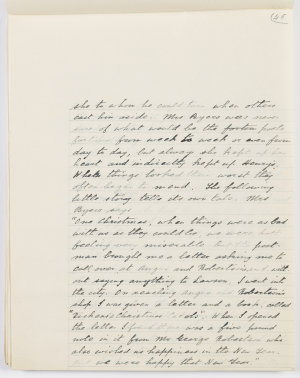 45
she to whom he could turn when others
cast him aside. Mrs Byers was never
sure of what would be the
from week to week or even from
day to day, but always she kept up
heart and indirectly kept up Henry's.
When things looked their worst they
often began to mend. The following
little story tells its own tale. Mrs
Byers says
"One Christmas, when things were as bad
with us as they could be, we were both
feeling very miserable but the post
man brought me a letter asking me to
call over at Angus and Robertson's with
out saying anything to Lawson. I went into
the city. On reaching Angus and Robertson's
shop I was given a letter and a book, called
"Dickens's Christmas". When I opened
the letter I found there was a five pound
note in it from Mr George Robertson who
also wished us happiness in the New Year.
we were happy that New Year."